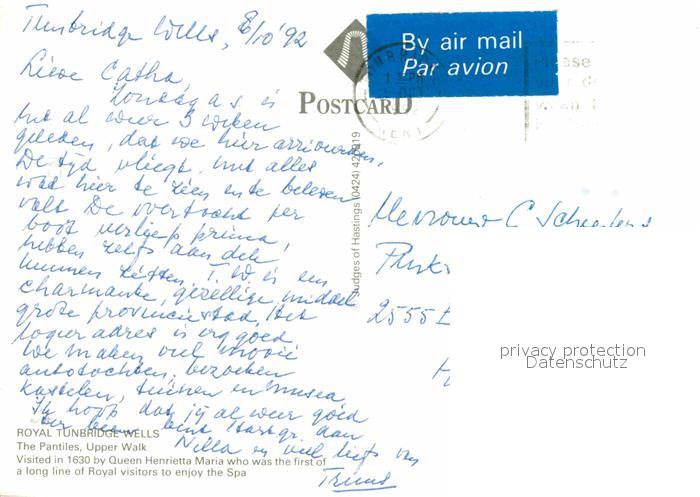 Tunbridge Wells, 8/10 '92
Lieve Catha
Zondag a.s. is
het al weer 3 weken
geleden, dat we hier arriveerden.
De tijd vliegt, met alles
wat hier te zien en te beleven
valt. De overtocht per
boot verliep prima,
hebben zelfs aan dek
kunnen zitten! TW is een
charmante, gezellige, middel
grote provinciestad. Het
logeer adres is erg goed.
We maken veel mooie
autotochten, bezoeken
kastelen, tuinen en musea.
Ik hoop dat jij al weer goed
ter been bent. Hart. gr. aan
Nella en veel liefs van
Truus
ROYAL TUNBRIDGE WELLS
The Pantiles, Upper Walk
Visited in 1630 by Queen Henrietta Maria who was the first of
a long line of Royal visitors to enjoy the Spa
POSTCARD
Judges of Hastings (0424) 42
By air mail
Par avion
Please
Mevrouw C
2555
privacy protection
Datenschutz